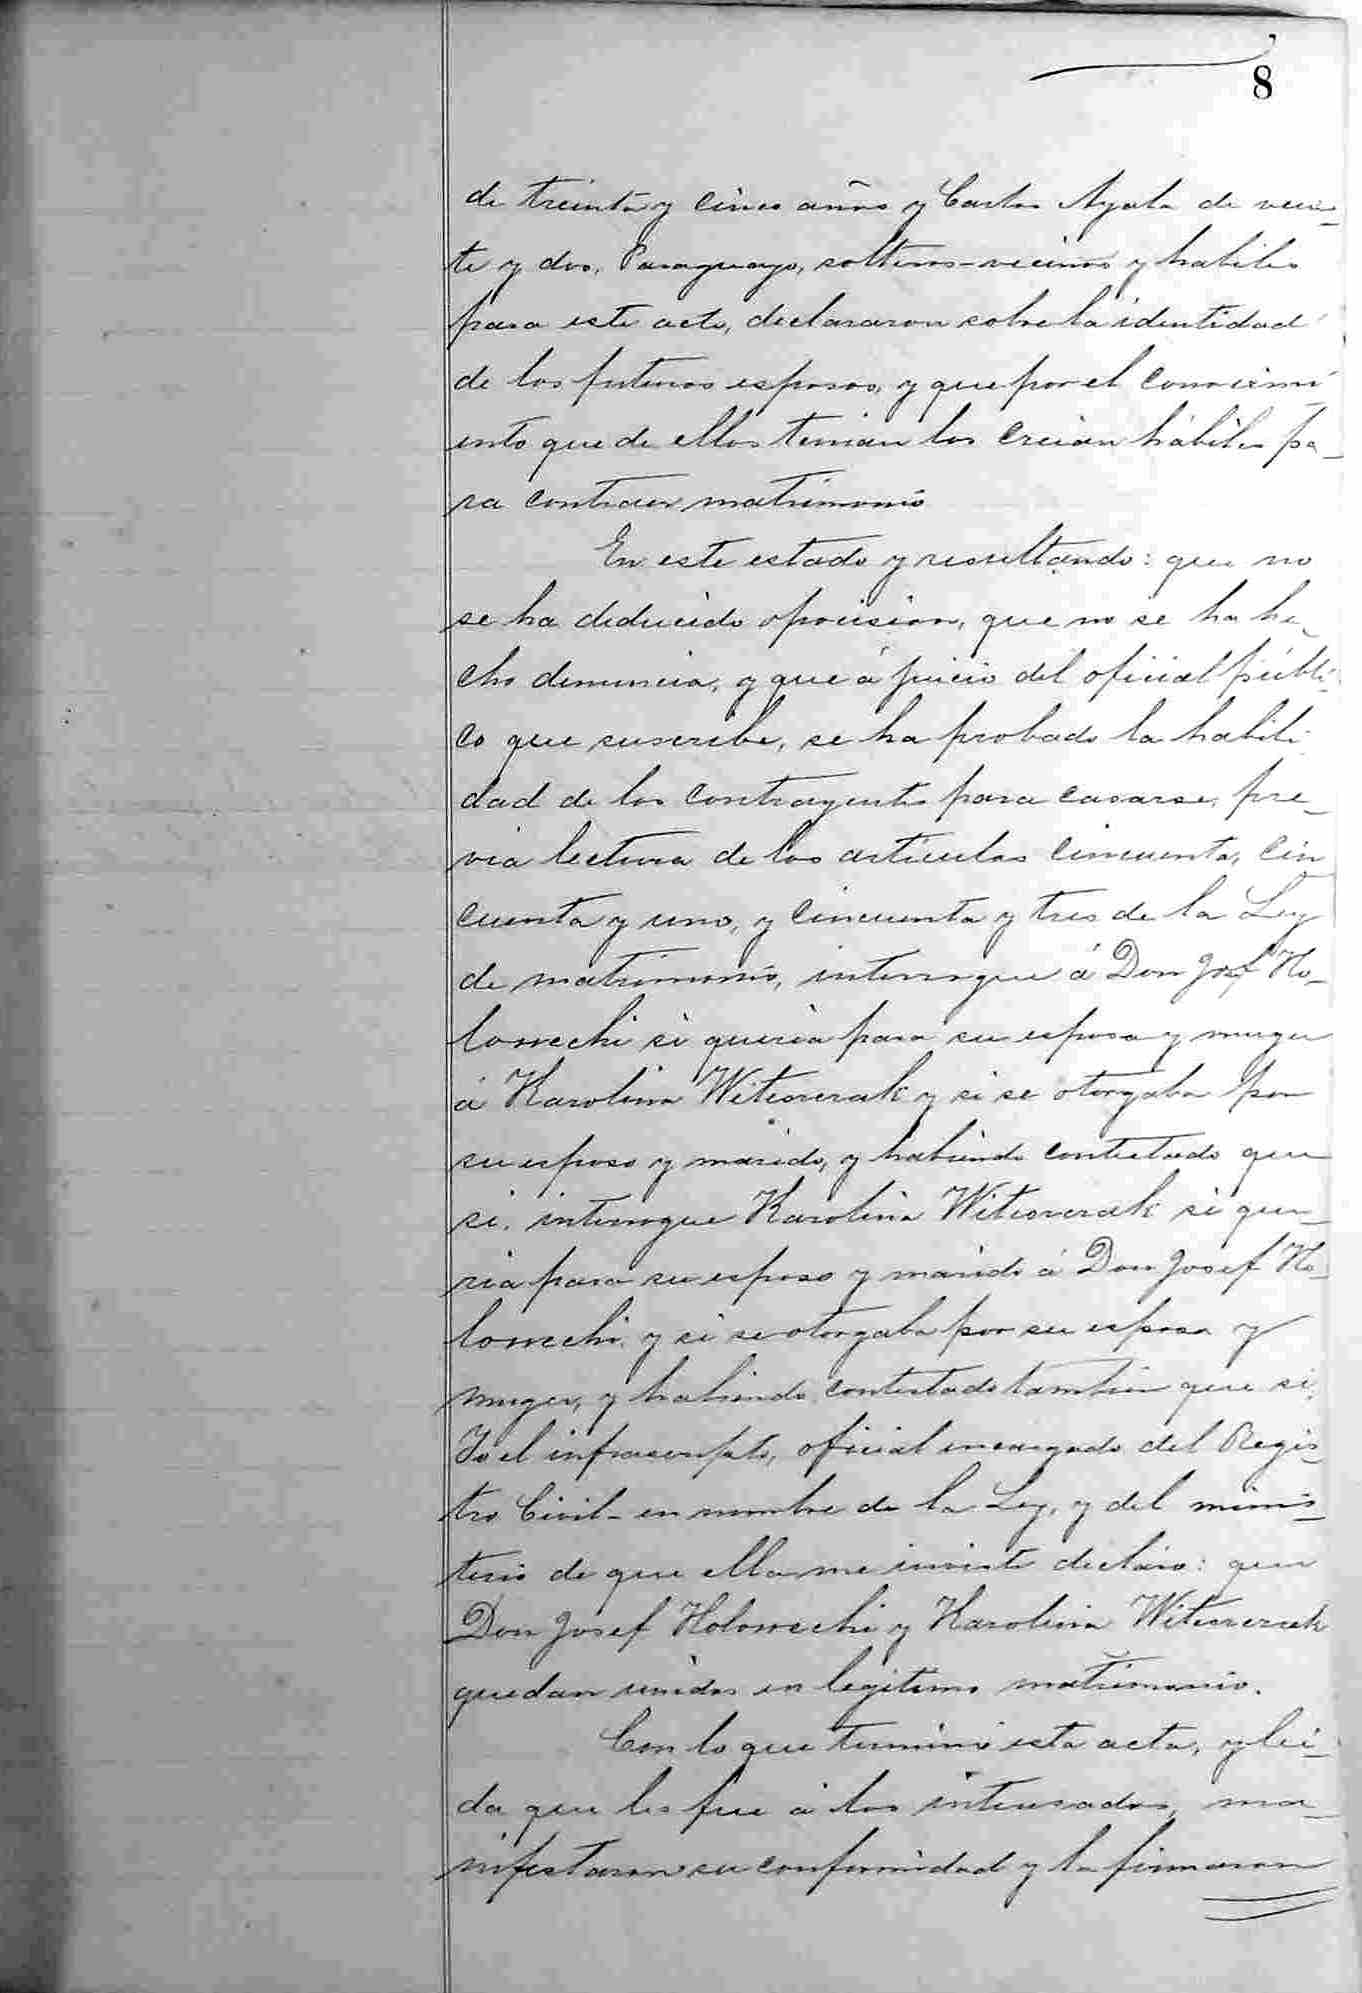 8
de treinta y cinco años y Carlos Ayala de vein-
te y dos, Paraguayo, solteros-vecinos y habiles
para este acto, declararon sobre la identidad
de los futuros esposos, y que por el conocimi
ento que de ellos tenian los creian hábiles pa-
ra contraer matrimonio
En este estado y resultando: que no
se ha deducido oposision, que no se ha he-
cho denuncia, y que á juicio del oficial públi-
co que suscribe, se ha probado la habili
dad de los contrayentes para casarse, pre-
via lectura de los artículos cincuenta, cin
cuenta y uno, y cincuenta y tres de la Ley
de matrimonio, interrogue á Don Josef Ho-
lowechi si queria para su esposa y muger
á Karolina Witcorerak y si se otorgaba por
su esposo y marido, y habiendo contestado que
si. interrogue Karolina Witcorerak si que-
ria para su esposo y marido á Don Josef Ho-
lowechi. y si se otorgaba por su esposa y
muger, y habiendo contestado tambien que si.
Yo el infrascripto, oficial encargado del Regis-
tro Civil- en nombre de la Ley, y del minis-
terio de que ella me inviste declaro: que
Don Josef Holowechi y Karolina Witcorerak
quedan unidos en legitimo matrimonio.
Con lo que terminó esta acta, y lei-
da que les fue á los interesados, ma-
nifestaron su conformidad y la firmaron